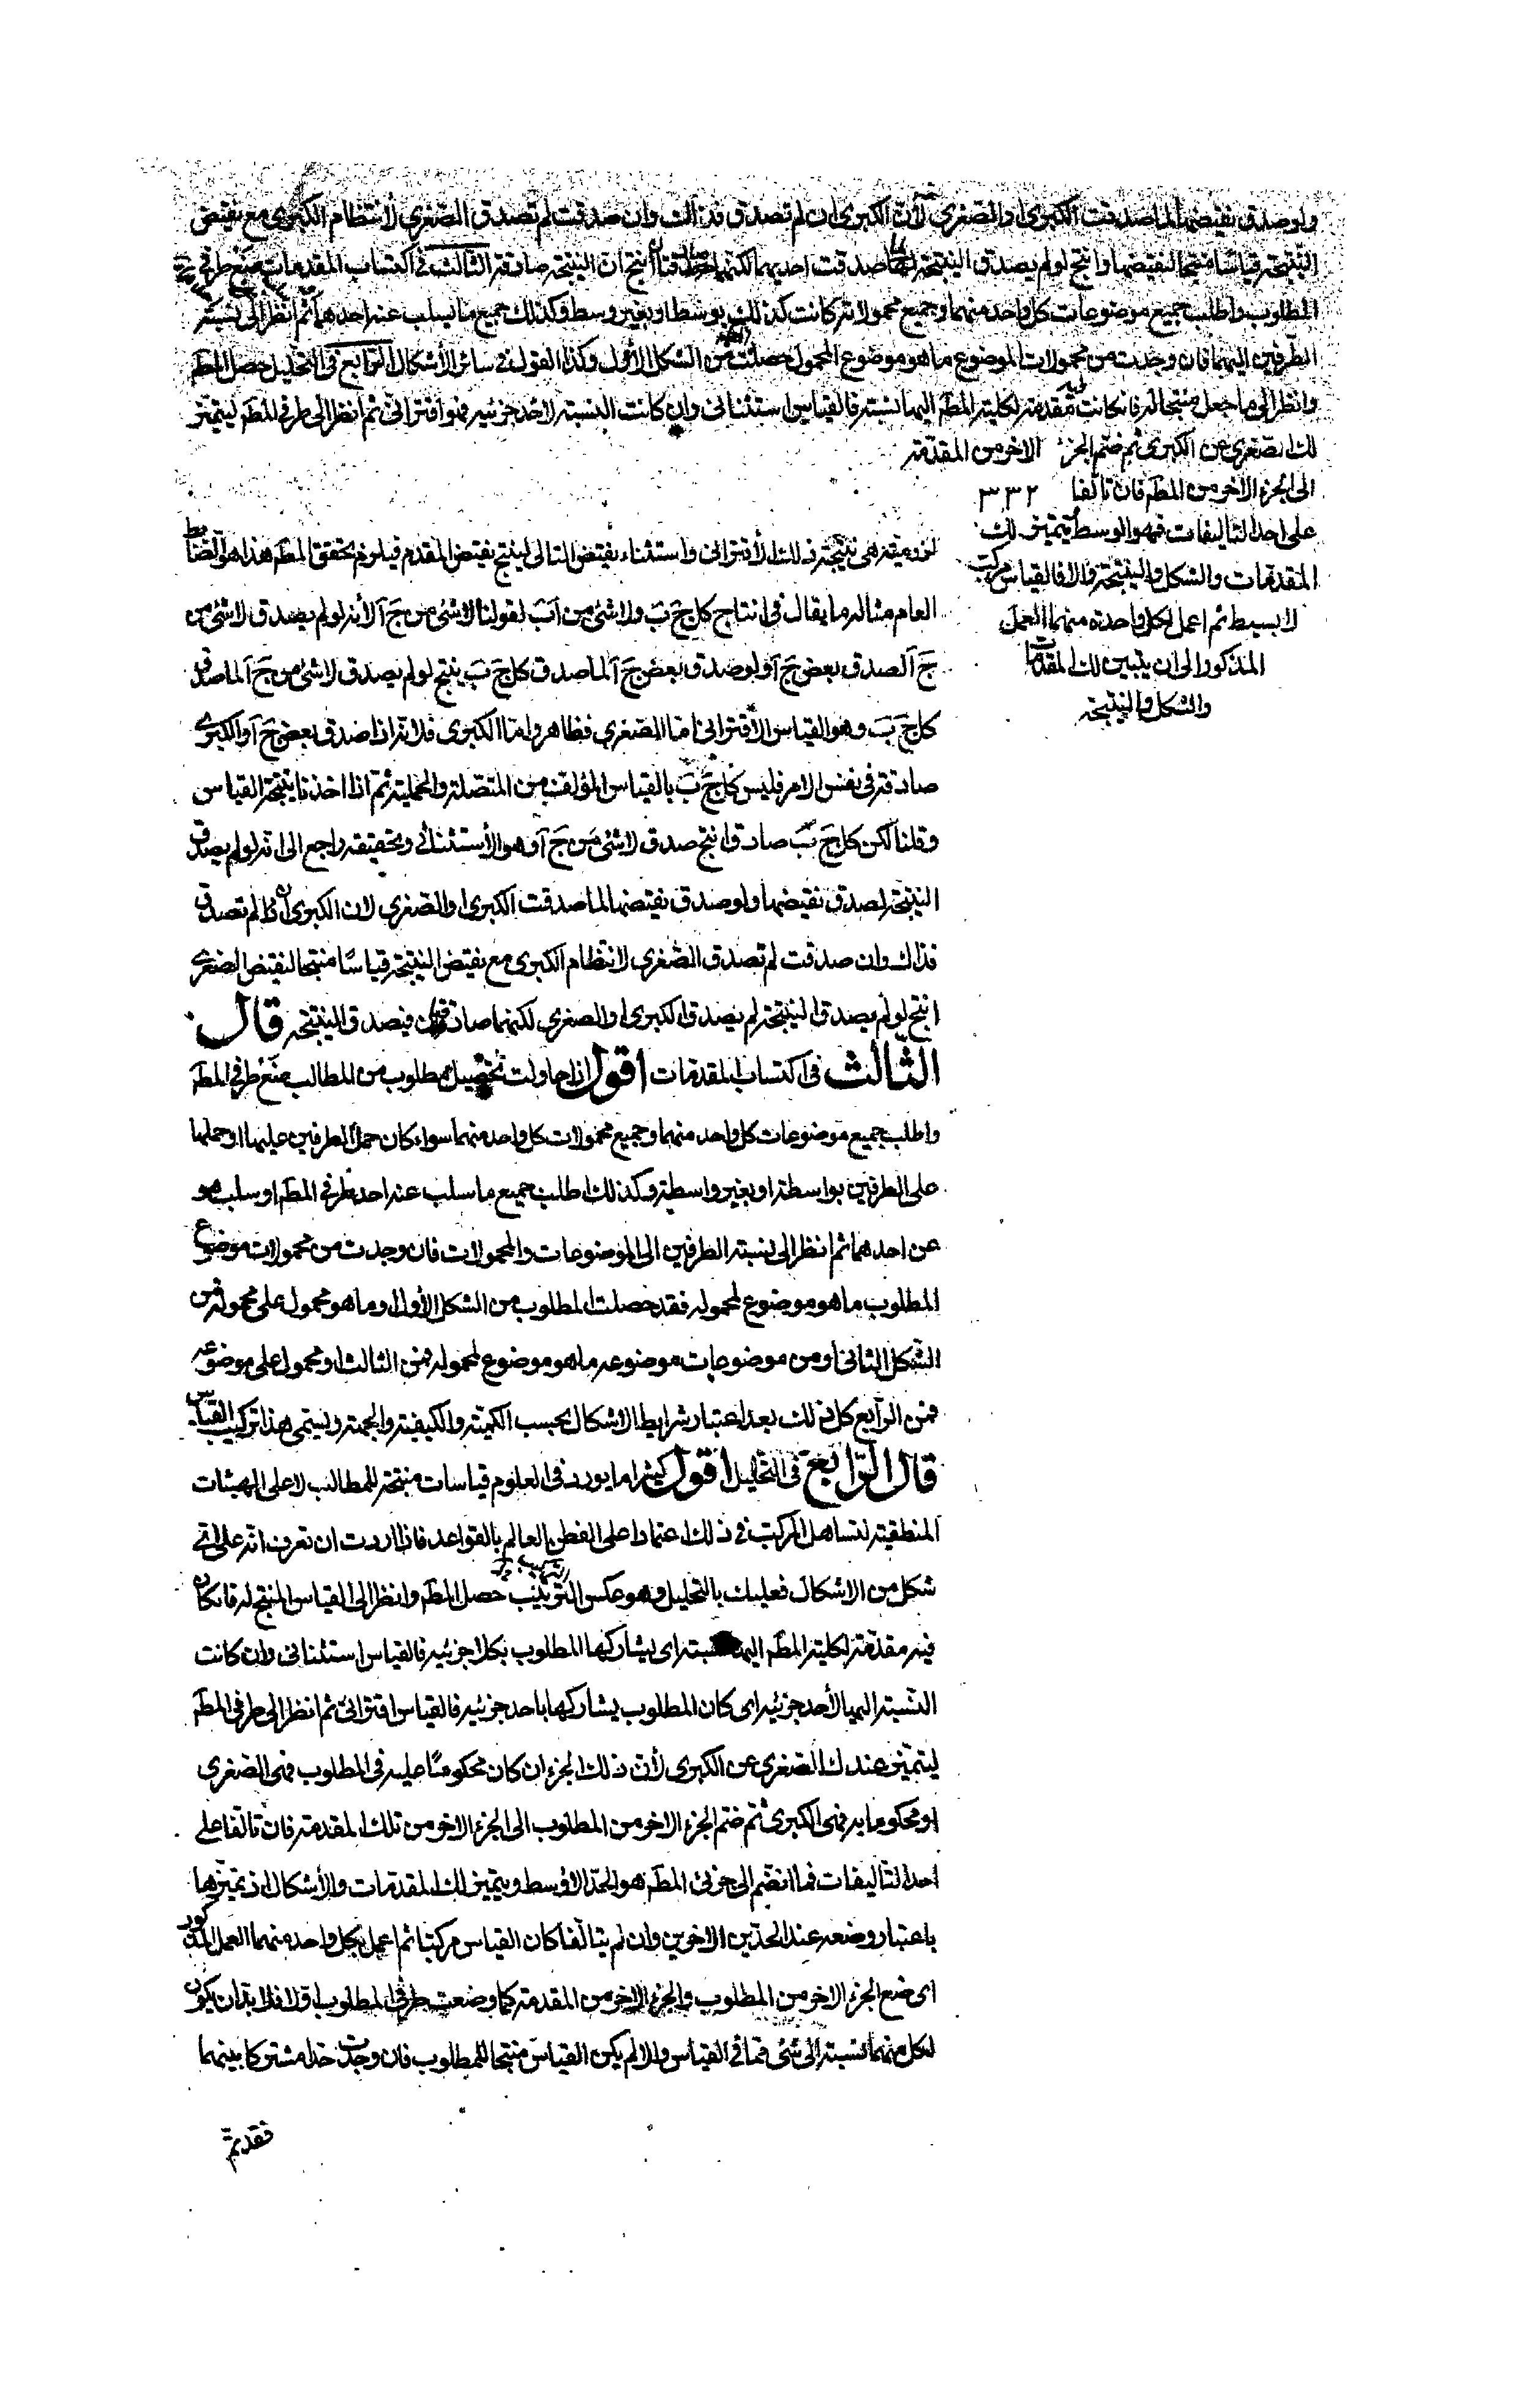 ولو صدق نقيضها لما صدقت الكبرى او الصغرى لأن الكبرى ان لم تصدق فذاك وان صدقت لم تصدق الصغرى لانتظام الكبرى مع نقيض
النتيجة قياسا منتجا لنقيضها وانتج لو لم يصدق النتيجة لما صدقت احديهما لكنهما صادقتان انتج ان النتيجة صادقة الثالث فى اكتساب المقدمات ضع طرفى
المطلوب واطلب جميع موضوعات كل واحد منهما وجميع محمولاته كانت كذلك بوسط او بغير وسط وكذلك جميع ما يسلب عنه احدهما ثم انظر الى نسبة
الطرفين اليهما فان وجدت من محمولات الموضوع ما هو موضوع المحمول حصلت من الشكل الأول وكذا القول فى سائر الأشكال الرابع فى التحليل حصل المط
وانظر الى ما جعل منتجا له فانكانت فيه مقدمة لكلية المط اليها نسبة فالقياس استثنائى وان كانت النسبة لأحد جزئيه فهو اقترانى ثم انظر الى طرفى المط ليتميز
لك الصغرى عن الكبرى ثم ضم الجزء الاخر من المقدمة
الى الجزء الاخر من المط فان تالفا
٣٣٢
على احد التاليفات فهو الوسط يتميز لك
المقدمات والشكل والنتيجة والا فالقياس مركب
لا بسيط ثم اعمل لكل واحدة منهما العمل
المذكور الى ان يتبين لك المقدمات
والشكل والنتيجة
هى نتيجة ذلك الأقترانى واستثناء نقيض التالى لينتج نقيض المقدم فيلزم تحقق المط هذا هو الضابط
العام مثاله ما يقال فى انتاج كل ج ب ولا شئ من ا ب لقولنا لا شئ من ج ا لأنه لو لم يصدق لا شئ من
ج ا لصدق بعض ج ا ولو صدق بعض ج ا لما صدق كل ج ب ينتج لو لم يصدق لا شئ من ج ا لما صدق
كل ج ب وهو القياس الأقترانى اما الصغرى فظاهر واما الكبرى فلانه اذا صدق بعض ج ا والكبرى
صادقة فى نفس الامر فليس كل ج ب بالقياس المؤلف من المتصلة والحملية ثم اذا اخذنا نتيجة القياس
وقلنا لكن كل ج ب صادق انتج صدق لا شئ من ج ا وهو الأستثنائى وتحقيقه راجع الى انه لو لم يصدق
النتيجة لصدق نقيضها ولو صدق نقيضها لما صدقت الكبرى او الصغرى لان الكبرى ان لم تصدق
فذاك وان صدقت لم تصدق الصغرى لانتظام الكبرى مع نقيض النتيجة قياسا منتجا لنقيض الصغرى
انتج لو لم يصدق النتيجة لم يصدق الكبرى او الصغرى لكنهما صادقتان فيصدق النتيجة قال
الثالث فى اكتساب المقدمات اقول اذا حاولت تحصيل مطلوب من المطالب ضع طرفى المط
واطلب جميع موضوعات كل واحد منهما وجميع محمولات كل واحد منهما سواء كان حمل الطرفين عليها او حملها
على الطرفين بواسطة او بغير واسطة وكذلك اطلب جميع ما سلب عنه احد طرفى المط او سلب هو
عن احدهما ثم انظر الى نسبة الطرفين الى الموضوعات والمحمولات فان وجدت من محمولات موضوع
المطلوب ما هو موضوع لمحموله فقد حصلت المطلوب من الشكل الأول او ما هو محمول على محموله فمن
الشكل الثانى او من موضوعات موضوعه ما هو موضوع لمحموله فمن الثالث او محمول على موضوعه
فمن الرابع كل ذلك بعد اعتبار شرايط الاشكال بحسب الكمية والكيفية والجهة ويسمى هذا تركيب القياس
قال الرابع فى التحليل اقول كثيرا ما يورد فى العلوم قياسات منتجة للمطالب لا على الهيئات
المنطقية لتساهل المركب فى ذلك اعتمادا على الفطن العالم بالقواعد فاذا اردت ان تعرف انه على اى
شكل من الاشكال فعليك بالتحليل وهو عكس التركيب حصل المط وانظر الى القياس المنتج له فانكان
فيه مقدمة لكلية المط اليها نسبة اى يشاركها المطلوب بكلا جزئيه فالقياس استثنائى وان كانت
النسبة اليها لأحد جزئيه اى كان المطلوب يشاركها باحد جزئيه فالقياس اقترانى ثم انظر الى طرفى المط
ليتميز عندك الصغرى عن الكبرى لأن ذلك الجزء ان كان محكوما عليه فى المطلوب فهى الصغرى
او محكوما به فهى الكبرى ثم ضم الجزء الاخر من المطلوب الى الجزء الاخر من تلك المقدمة فان تالفا على
احد التاليفات فما انضم الى جزئى المط هو الحد الاوسط ويتميز لك المقدمات والأشكال اذ تميزها
باعتبار وضعه عند الحدين الاخرين وان لم يتالفا كان القياس مركبا ثم اعمل بكل واحد منهما العمل المذكور
اى ضع الجزء الاخر من المطلوب والجزء الاخر من المقدمة كما وضعت طرفى المطلوب اولا فلا بد ان يكون
لكل منهما نسبة الى شئ ما فى القياس والا لم يكن القياس منتجا للمطلوب فان وجدت حدا مشتركا بينهما
فقد تم